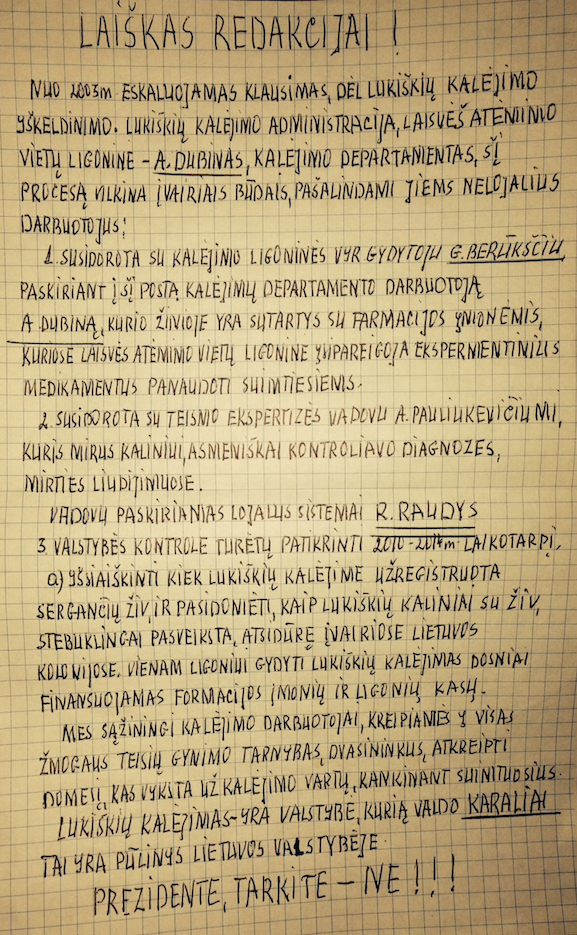 LAIŠKAS REDAKCIJAI !
NUO 2003m ESKALUOJAMAS KLAUSIMAS, DĖL LUKIŠKIŲ KALĖJIMO
IŠKELDINIMO. LUKIŠKIŲ KALĖJIMO ADMINISTRACIJA, LAISVĖS ATĖMIMO
VIETŲ LIGONINE - A. DUBINAS, KALĖJIMO DEPARTAMENTAS, ŠĮ
PROCESĄ VILKINA ĮVAIRIAIS BŪDAIS, PAŠALINDAMI JIEMS NELOJALIUS
DARBUOTOJUS:
1. SUSIDOROTA SU KALĖJIMO LIGONINĖS VYR GYDYTOJU G. BERŪKSČIU,
PASKIRIANT Į ŠĮ POSTĄ KALĖJIMŲ DEPARTAMENTO DARBUOTOJĄ
A. DUBINĄ, KURIO ŽINIOJE YRA SUTARTYS SU FARMACIJOS ĮMONĖMIS,
KURIOSE LAISVĖS ATĖMIMO VIETŲ LIGONINE ĮSIPAREIGOJA EKSPERIMENTINIUS
MEDIKAMENTUS PANAUDOTI SUIMTIESIEMS.
2. SUSIDOROTA SU TEISMO EKSPERTIZĖS VADOVU A. PAULIUKEVIČIUMI,
KURIS MIRUS KALINIUI, ASMENIŠKAI KONTROLIAVO DIAGNOZES,
MIRTIES LIUDIJIMUOSE.
VADOVU PASKIRIAMAS LOJALUS SISTEMAI R. RAUDYS
3 VALSTYBĖS KONTROLE TURĖTŲ PATIKRINTI 2010-2014m LAIKOTARPĮ,
a) IŠSIAIŠKINTI KIEK LUKIŠKIŲ KALĖJIME UŽREGISTRUOTA
SERGANČIŲ ŽIV, IR PASIDOMĖTI, KAIP LUKIŠKIŲ KALINIAI SU ŽIV,
STEBUKLINGAI PASVEIKSTA, ATSIDŪRĘ ĮVAIRIOSE LIETUVOS
KOLONIJOSE. VIENAM LIGONIUI GYDYTI LUKIŠKIŲ KALĖJIMAS DOSNIAI
FINANSUOJAMAS FORMACIJOS ĮMONIŲ IR LIGONIŲ KASŲ.
MES SĄŽININGI KALĖJIMO DARBUOTOJAI, KREIPIAMĖS Į VISAS
ŽMOGAUS TEISIŲ GYNIMO TARNYBAS, DVASININKUS, ATKREIPTI
DOMESĮ, KAS VYKSTA UŽ KALĖJIMO VARTŲ, KANKINANT SUIMTUOSIUS.
LUKIŠKIŲ KALĖJIMAS-YRA VALSTYBĖ, KURIĄ VALDO KARALIAI
TAI YRA PŪLINYS LIETUVOS VALSTYBĖJE.
PREZIDENTE, TARKITE - NE ! ! !